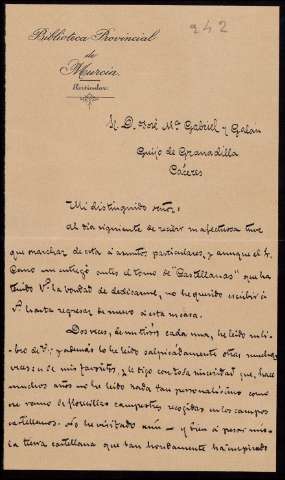 242
Biblioteca Provincial
de
Murcia.
Particular.
Sr. D. José Mª Gabriel y Galán
Guijo de Granadilla
Cáceres
Mi distinguido señor:
Al día siguiente de recibir su afectuosa tuve
que marchar de esta a asuntos particulares, y aunque el Sr.
Como un entregó antes el tomo de "Castellanas" que ha
tenido Vd. la bondad de dedicarme, no he querido escribir á
Vd. hasta regresar de nuevo á esta mi casa.
Dos veces, de un tirón cada una, he leído su li-
bro de Vd. y además lo he leído salpicadamente otras muchas
veces
mis favoritos, y le digo con toda sinceridad que, hace
muchos años no he leído nada tan personalísimo como
ese ramo de florecillas campestres recogidas en los campos
castellanos. No he visitado aún — y bien á pesar mío —
la tierra castellana que tan hondamente ha inspirado